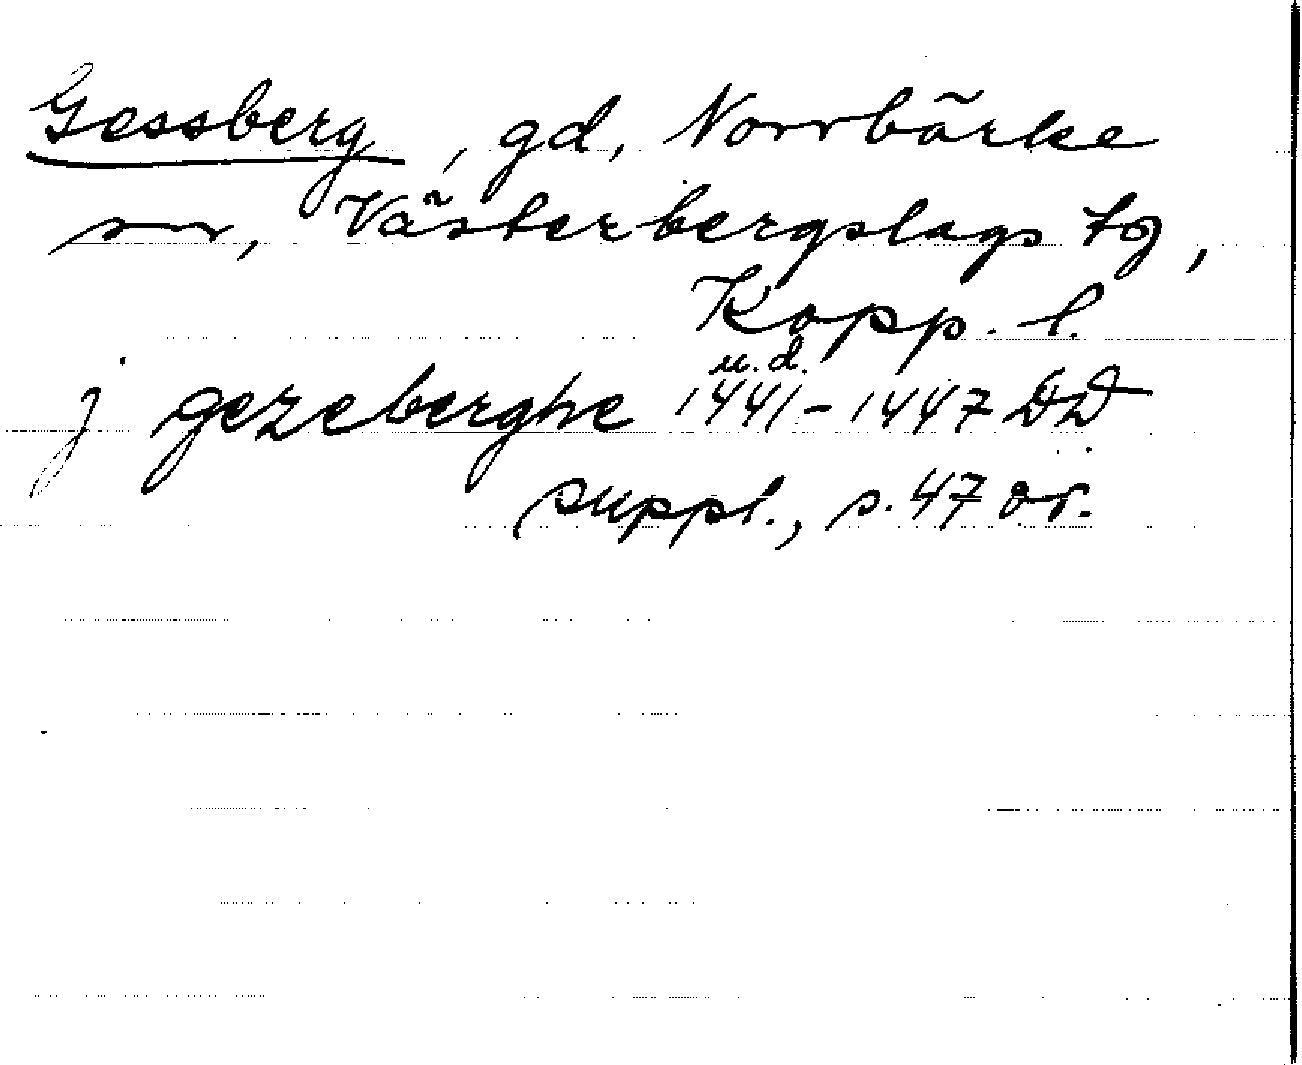 Gessberg, gd, Norrbärke
sn, Västerbergslags tg,
Kopp. l.
u.d.
j gezeberghe 1441-1447 DD
suppl., s. 47 or.